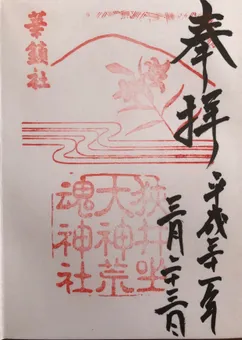 奉拝
平成三十一年
三月二十三日
華鎮社
狹井坐
大神荒
魂神社